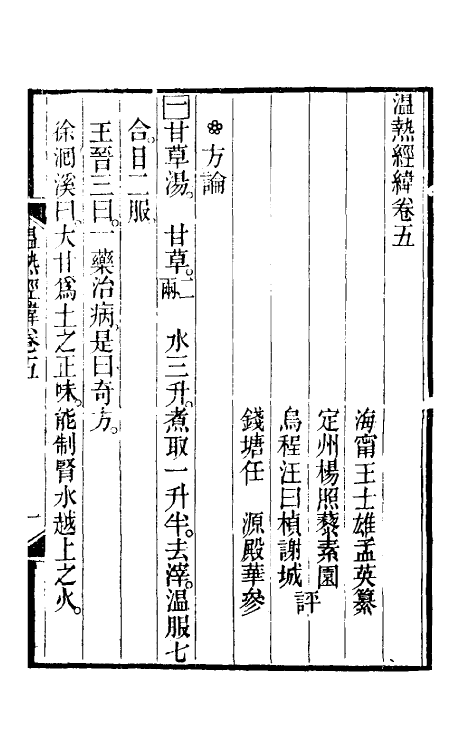 温熱經緯卷五
海甯王士雄孟英纂
定州楊照藜素園
烏程汪曰楨謝城 評
錢塘任 源殿華參
方論
一 甘草湯。 甘草。二兩 水三升。煮取一升半。去滓。温服七
合。日二服。
王晉三曰。一藥治病。是曰奇方。
徐洄溪曰。大甘爲土之正味。能制腎水越上之火。
温熱經緯卷五 一